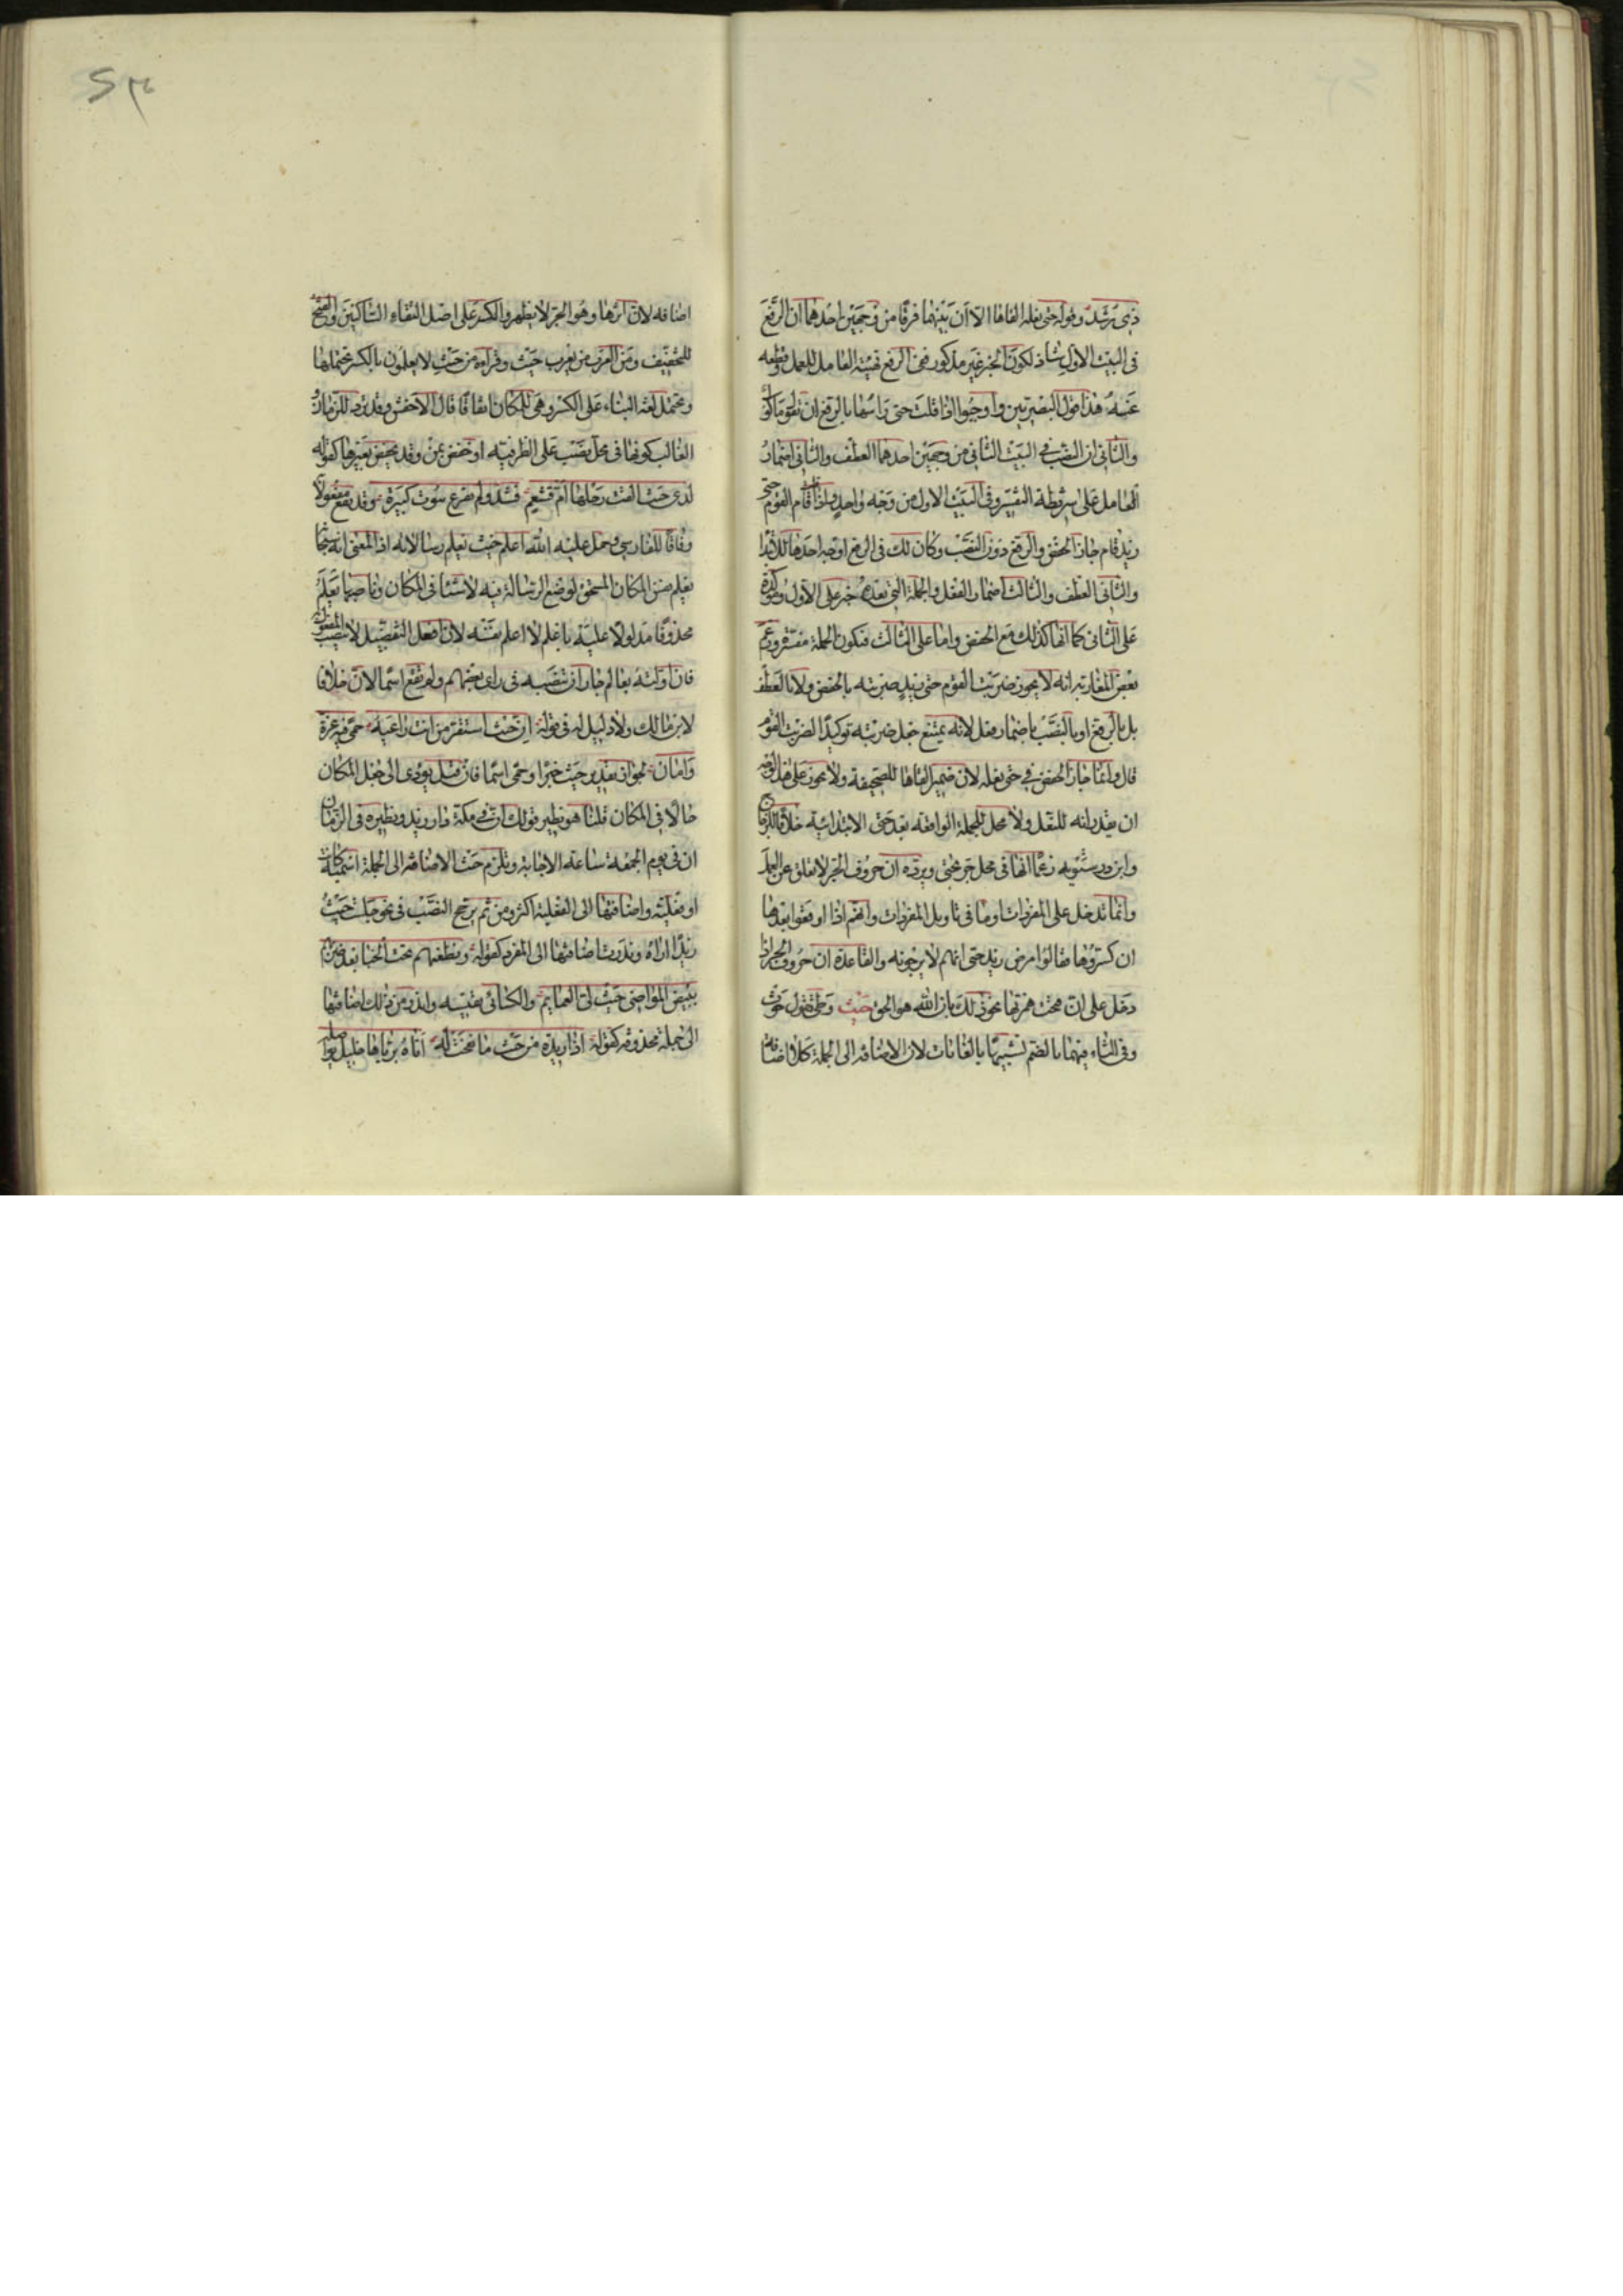 ذى رشد وقوله حتى نعله القاها الا ان بينهما فرقا من وجهين احدهما ان الرفع
فى البيت الاول شاذ لكون الخبر غير مذكور ففى الرفع تهيئة العامل للعمل وقطعه
عنه هذا قول البصريين واوجبوا اذا قلت حتى راسها بالرفع ان تقول ماكول
والثانى ان النصب فى البيت الثانى من وجهين احدهما العطف والثانى اضمار
العامل على شريطة التفسير وفى البيت الاول من وجه واحد واذا قلت قام القوم حتى
زيد قام جاز الخفض والرفع دون النصب وكان لك فى الرفع اوجه احدها الابتدا
والثانى العطف والثالث اضمار الفعل والجملة التى بعدها خبر على الاول ومؤكدة
على الثانى كما انها كذلك مع الخفض واما على الثالث فتكون الجملة مفسرة وزعم
بعض المغاربة انه لا يجوز ضربت القوم حتى زيد ضربته بالخفض ولا بالعطف
بل بالرفع او بالنصب باضمار فعل لانه يمتنع جعل ضربته توكيدا لضربت القوم
قال وانما جاز الخفض فى حتى نعله لان ضمير القاها للصحيفة ولا يجوز على هذا الوجه
ان يقدر انه للنعل ولا محل للجملة الواقعة بعد حتى الابتدائية خلافا للزجاج
وابن درستويه زعما انها فى محل جر بحتى ويرده ان حروف الجر لا تعلق عن العمل
وانما تدخل على المفردات او ما فى تاويل المفردات وانهم اذا اوقعوا بعدها
ان كسروها فقالوا مرض زيد حتى انهم لا يرجونه والقاعدة ان حروف الجر اذا
دخل على ان فتحت همزتها نحو ذلك بان الله هو الحق حيث وطى تقول حوث
وفى الثاء فيهما بالضم تشبيها بالغايات لان الاضافة الى الجملة كلا اضافة
اضافة لان اثرها وهو الجر لا يظهر والكسر على اصل التقاء الساكنين والفتح
للتخفيف ومن العرب من يعرب حيث وقراءة من حيث لا يعلمون بالكسر تحتملها
وتحتمل لغة البناء على الكسر وهى للمكان اتفاقا قال الاخفش وقد ترد للزمان و
الغالب كونها فى محل نصب على الظرفية او خفض بمن وقد تخفض بغيرها كقوله
لدى حيث القت رحلها ام قشعم فشد ولم تفزع بيوت كثيرة وقد تقع مفعولا
وفاقا للفارسى وحمل عليه الله اعلم حيث يجعل رسالاته اذ المعنى انه سبحانه
يعلم نفس المكان المستحق لوضع الرسالة فيه لا شيئا فى المكان وناصبها يعلم
محذوفا مدلولا عليه باعلم لا اعلم نفسه لان افعل التفضيل لا ينصب المفعول به
فان اولته بعالم جاز ان تنصبه فى راى بعضهم ولم تقع اسما لان خلافا
لابن مالك ولا دليل له فى قوله ان حيث استقر من انت راعيه حمى فيه عزة
وامان لجواز تقدير حيث خبرا وحمى اسما فان قيل يؤدى الى جعل المكان
حالا فى المكان قلنا هو نظير قولك ان فى مكة دار زيد ونظيره فى الزمان
ان فى يوم الجمعة ساعة الاجابة وتلزم حيث الاضافة الى الجملة اسمية كانت
او فعلية واضافتها الى الفعلية اكثر ومن ثم يرجح النصب فى نحو جلست حيث
زيدا اراه وندرت اضافتها الى المفرد كقوله ونطعنهم تحت الحبا بعد ضربهم
ببيض المواضى حيث لى العمائم والكسائى يقيسه واندر من ذلك اضافتها
الى جملة محذوفة كقوله اذا ريدة من حيث ما نفحت له اتاه برياها خليل يواصله